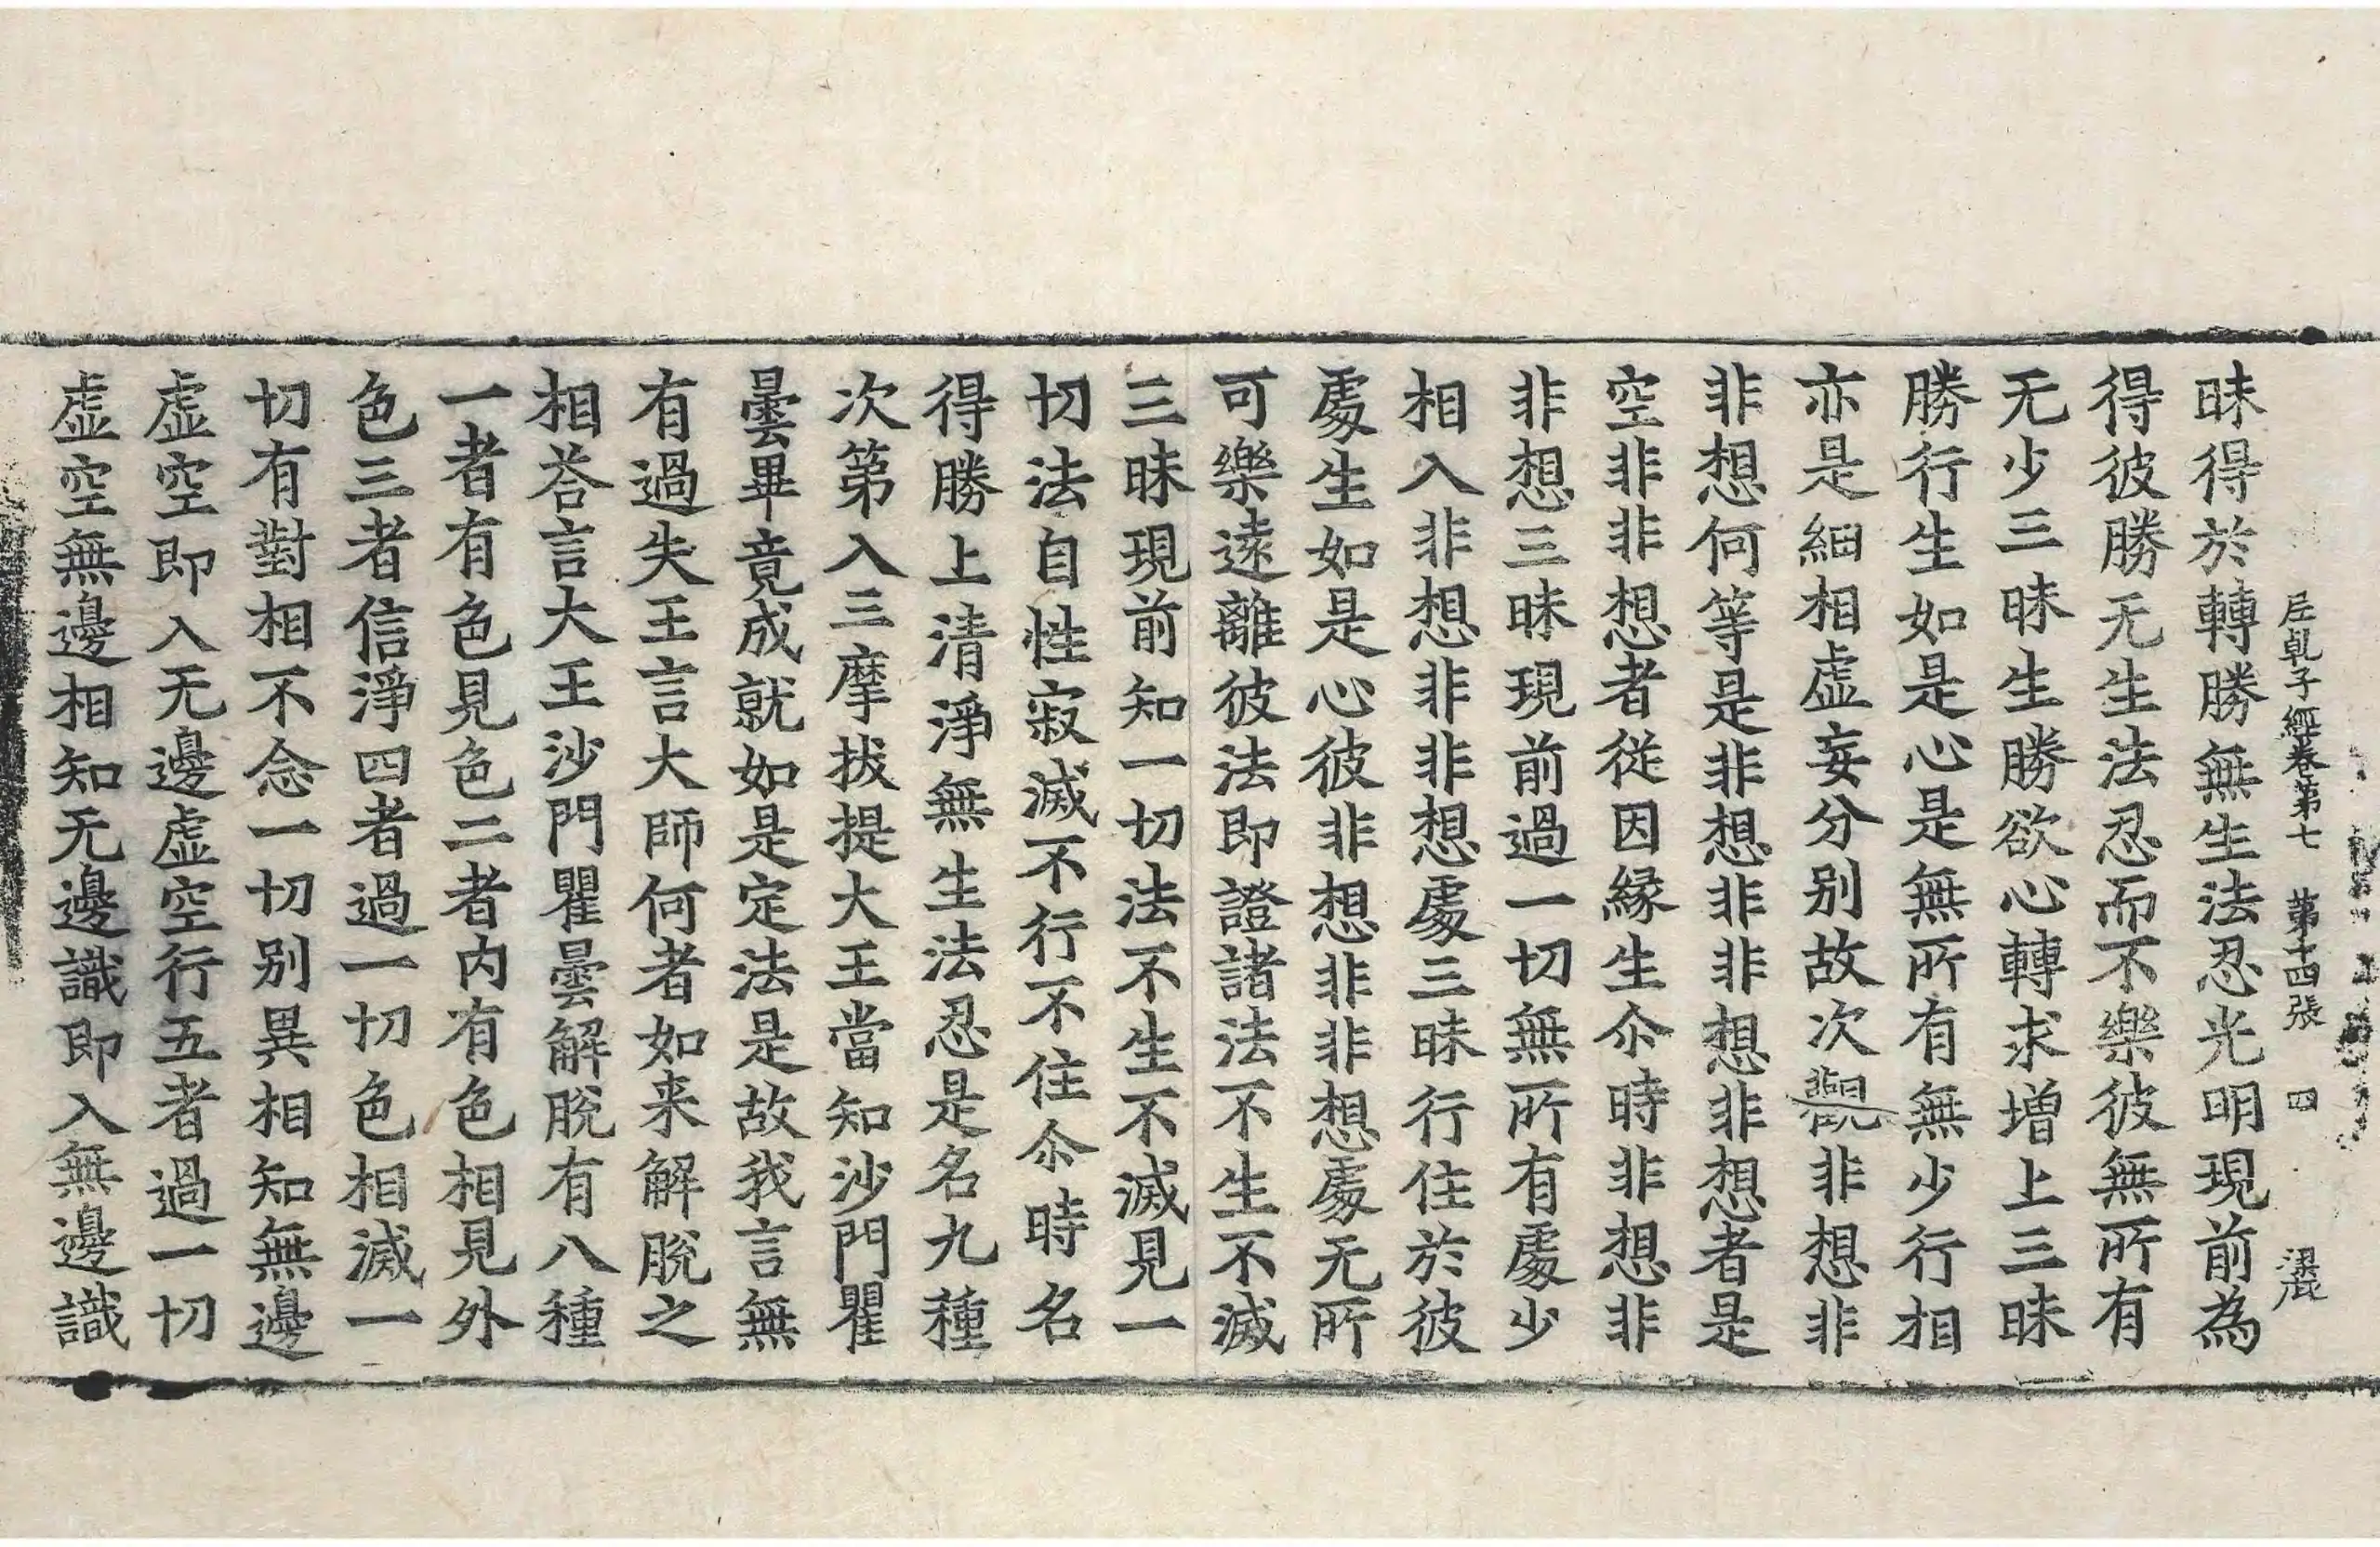 尼乹子經卷第七　第十四張　四
昧得於轉勝無生法忍光明現前為
得彼勝无生法忍而不樂彼無所有
无少三昧生勝欲心轉求增上三昧
勝行生如是心是無所有無少行相
亦是細相虛妄分別故次觀非想非
非想何等是非想非非想非想者是
空非非想者從因緣生尒時非想非
非想三昧現前過一切無所有處少
相入非想非非想處三昧行住於彼
處生如是心彼非想非非想處无所
可樂遠離彼法即證諸法不生不滅
三昧現前知一切法不生不滅見一
切法自性寂滅不行不住尒時名
得勝上清淨無生法忍是名九種
次第入三摩拔提大王當知沙門瞿
曇畢竟成就如是定法是故我言無
有過失王言大師何者如来解脫之
相荅言大王沙門瞿曇解脫有八種
一者有色見色二者內有色相見外
色三者信淨四者過一切色相滅一
切有對相不念一切別異相知無邊
虛空即入无邊虛空行五者過一切
虛空無邊相知无邊識即入無邊識